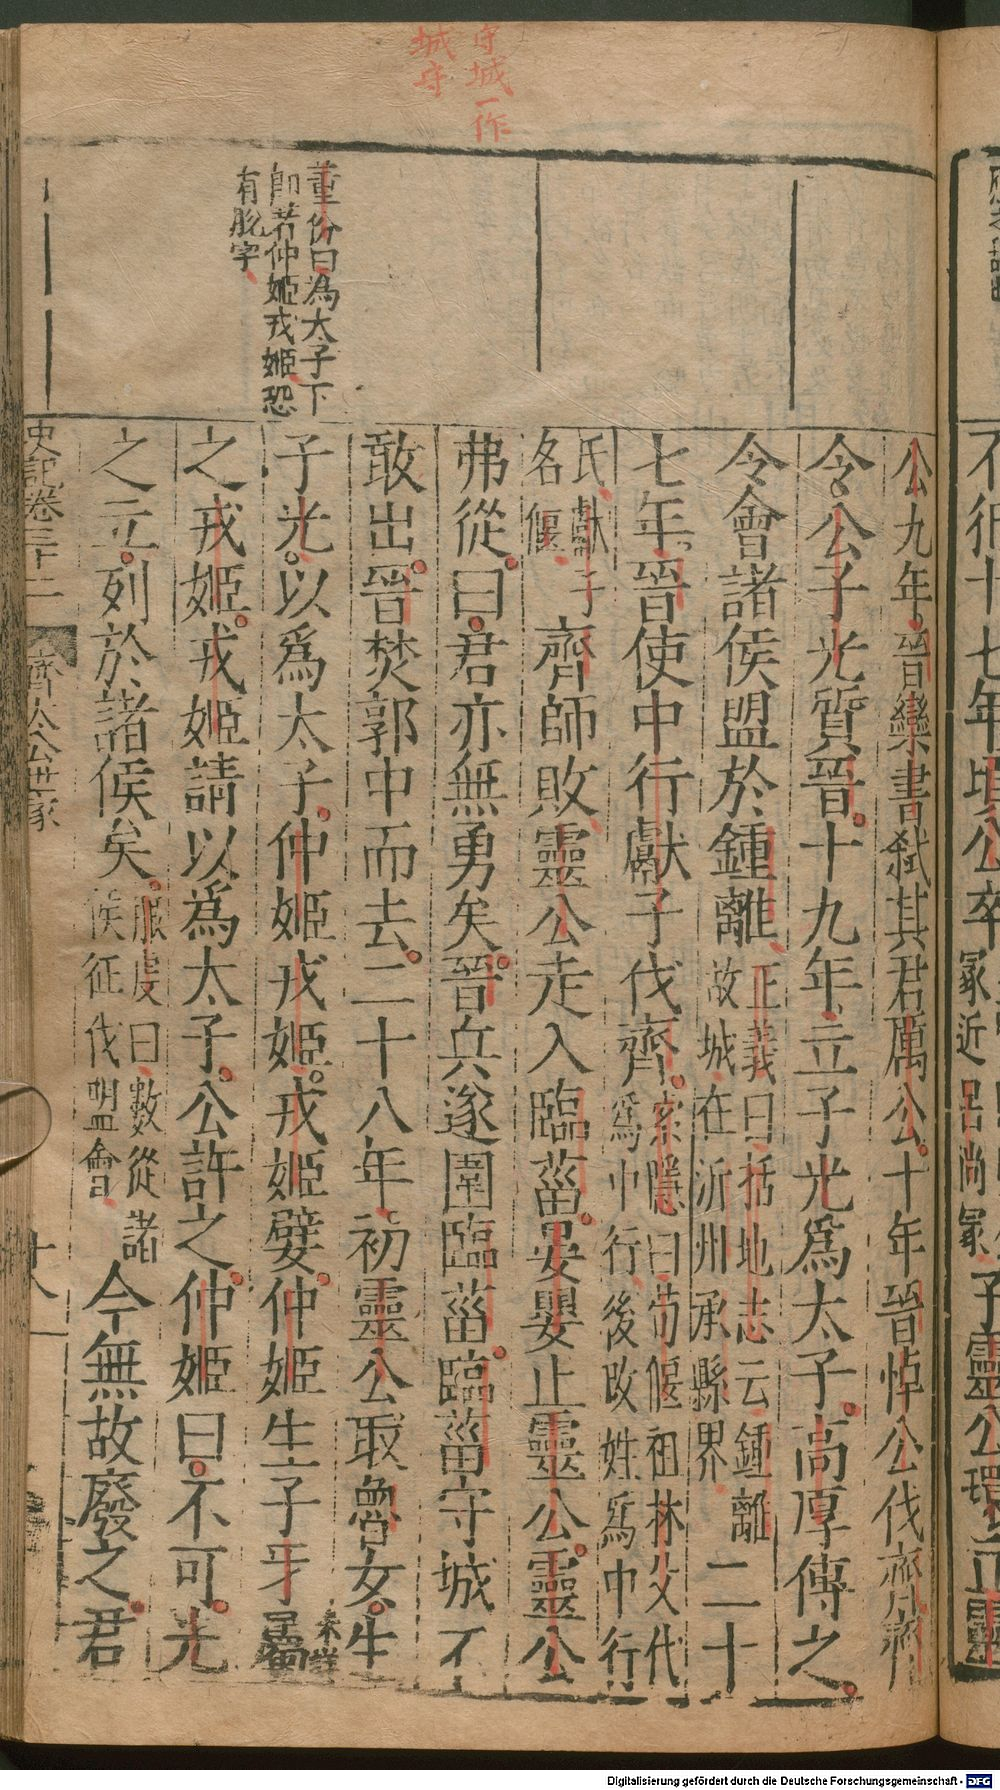 守城一作
城守
董份曰為太子下
卽若仲姬戎姬恐
有脫字
公九年晉欒書弒其君厲公十年晉悼公伐齊齊
令公子光質晉十九年立子光爲太子高厚傅之
令會諸侯盟於鍾離正義曰括地志云鍾離故城在沂州承縣界二十
七年晉使中行獻子伐齊索隱曰荀偃祖林父代爲中行後改姓爲中行
氏獻子名偃齊師敗靈公走入臨菑晏嬰止靈公靈公
弗從曰君亦無勇矣晉兵遂圍臨菑臨菑守城不
敢出晉焚郭中而去二十八年初靈公取魯女生
子光以爲太子仲姬戎姬戎姬嬖仲姬生子牙屬
之戎姬戎姬請以爲太子公許之仲姬曰不可光
之立列於諸侯矣服虔曰數從諸侯征伐盟會今無故廢之君
史記卷三十二
齊太公世家
十八
不很十七年頃公卒
冢近呂尚冢子靈公環立
Digitalisierung gefördert durch die Deutsche Forschungsgemeinschaft - DFG